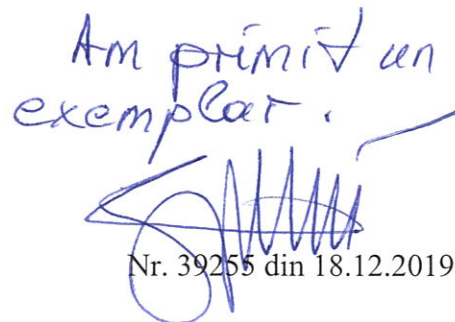 Am primit un
exemplar.
Nr. 39255 din 18.12.2019